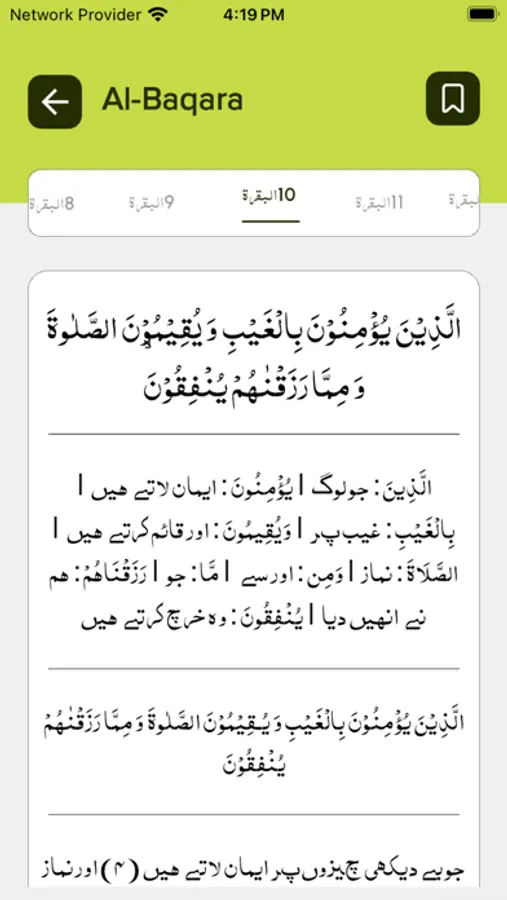 Network Provider 4:19 PM
Al-Baqara
8البقرة 9البقرة 10البقرة 11البقرة
الَّذِيۡنَ يُؤۡمِنُوۡنَ بِالۡغَيۡبِ وَ يُقِيۡمُوۡنَ الصَّلٰوةَ
وَ مِمَّا رَزَقۡنٰهُمۡ يُنۡفِقُوۡنَ
الَّذِينَ: جو لوگ | يُؤْمِنُونَ: ایمان لاتے ھیں |
بِالْغَيْبِ: غیب پر | وَيُقِيمُونَ: اور قائم کرتے ھیں |
الصَّلَاةَ: نماز | وَمِن: اور سے | مَّا: جو | رَزَقْنَاهُمْ: ھم
نے انھیں دیا | يُنْفِقُونَ: وہ خرچ کرتے ھیں
الَّذِيۡنَ يُؤۡمِنُوۡنَ بِالۡغَيۡبِ وَ يُـقِيۡمُوۡنَ الصَّلٰوةَ وَ مِمَّا رَزَقۡنٰهُمۡ
يُنۡفِقُوۡنَ
جو بے دیکھی چیزوں پر ایمان لاتے ھیں (۴) اور نماز